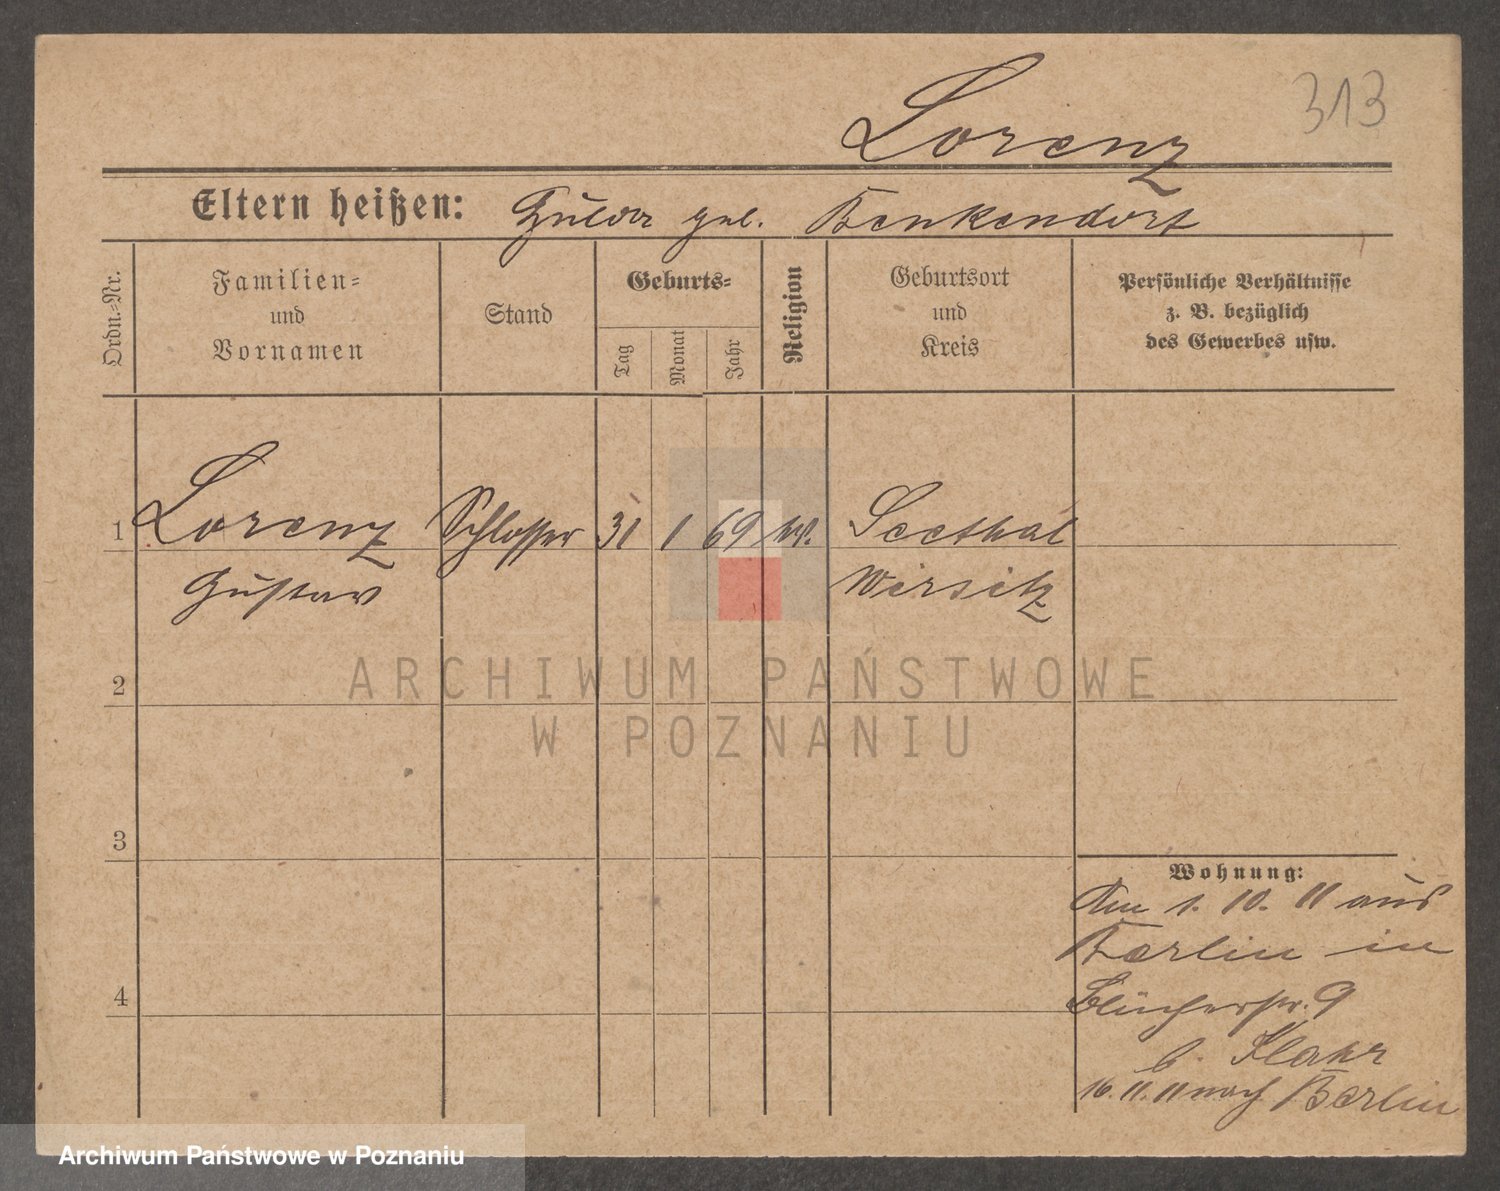 313
Lorenz
Eltern heißen: geb. Benkendorf
Ordn.-Nr.
Familien-
und
Vornamen
Stand
Geburts-
Tag
Monat
Jahr
Religion
Geburtsort
und
Kreis
Persönliche Verhältnisse
z. B. bezüglich
des Gewerbes usw.
1 Lorenz Schlosser 31 1 69 Seethal
Gustav Wirsitz
2
3
4
Wohnung:
Am 1. 10. 11 aus
Berlin in
Blücherstr. 9
b. Klahr
16. 11. 11 nach Berlin
ARCHIWUM PAŃSTWOWE
W POZNANIU
Archiwum Państwowe w Poznaniu